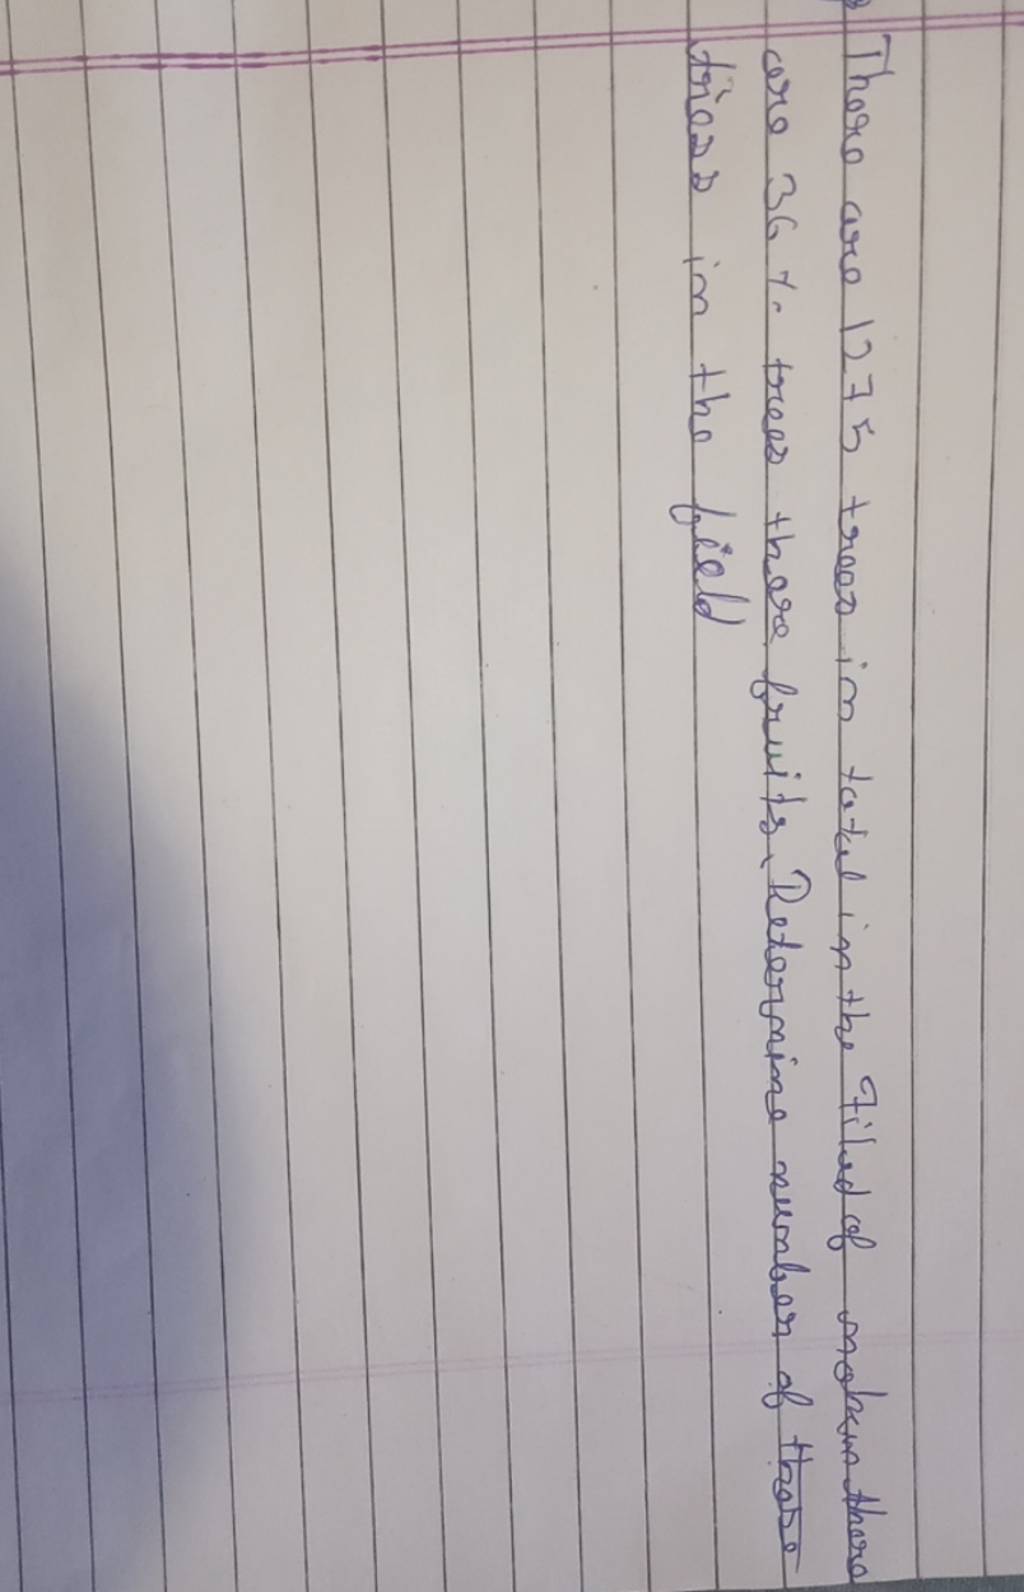 There are 1275 trees in total in the Filed of mohan there
are 36 %. trees there fruits. Determine number of
trees in the field